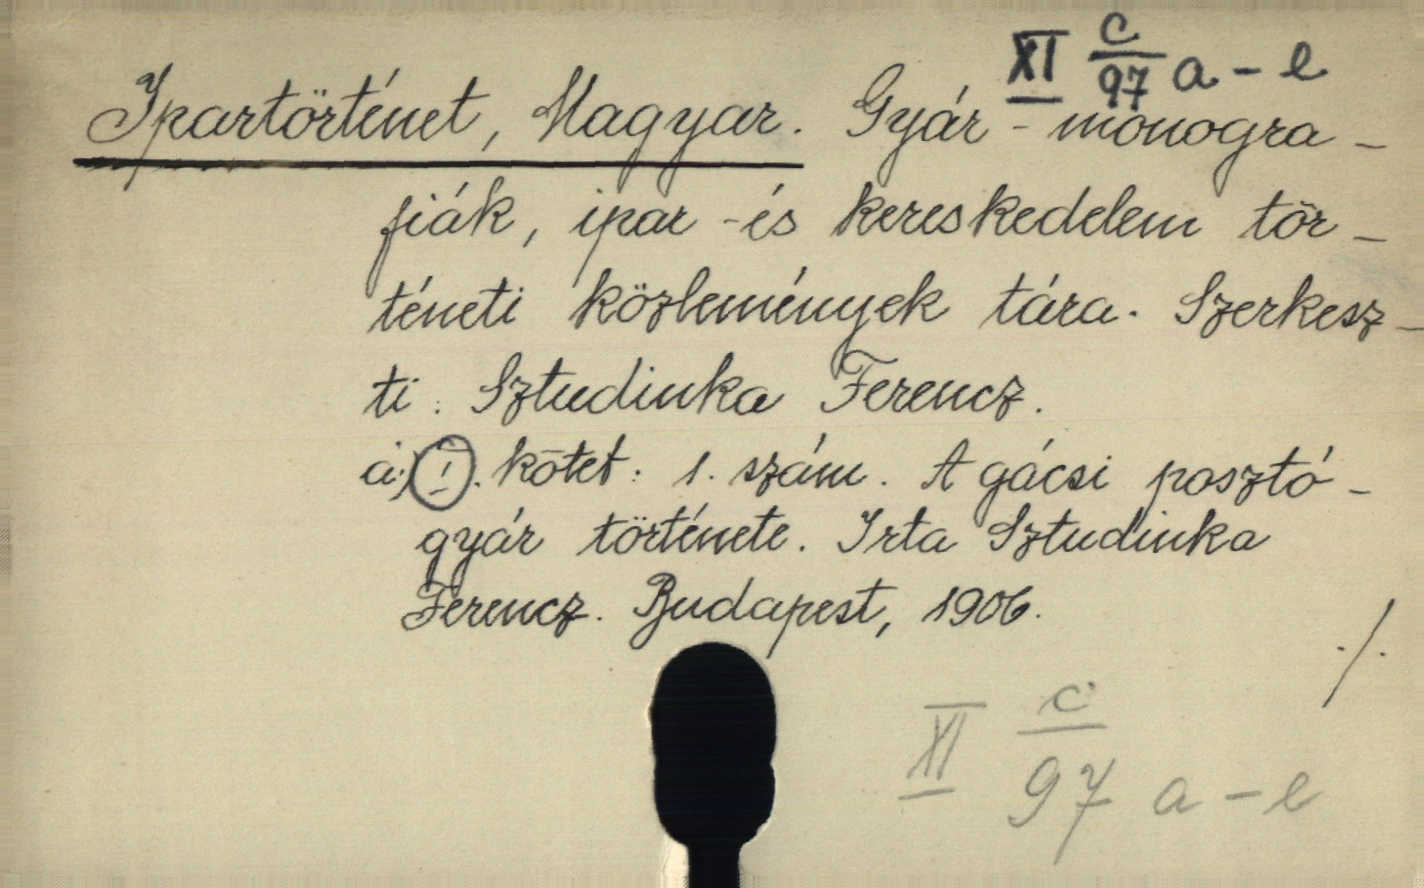 XI c/97 a - e
Ipartörténet, Magyar. Gyár - monogra -
fiák, ipar - és kereskedelem tör -
téneti közlemények tára. Szerkesz -
ti: Sztudinka Ferencz.
a.) I. kötet: 1. szám. A gácsi posztó -
gyár története. Irta Sztudinka
Ferencz. Budapest, 1906.
./.
XI c/97 a - e